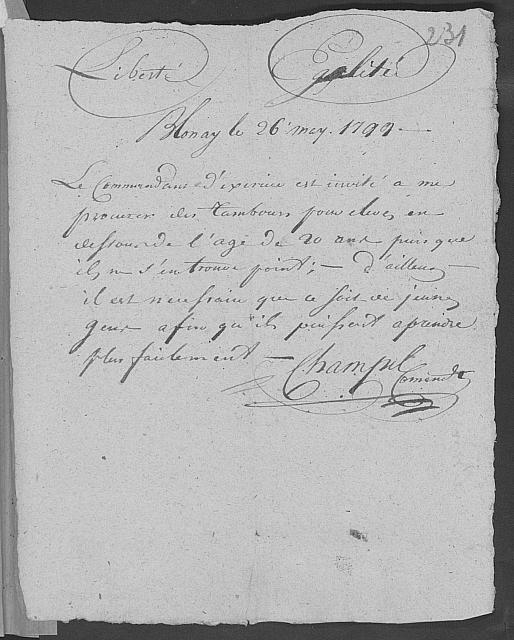 231
Liberté Egalité
Blonay le 26 may. 1799 —
Le Commandant d'exercice est invité a me
procurer des tambours pour eleves en
dessous de l'age de 20 ans puis que
ils ne s'en trouve point; — d'ailleurs —
il est necessaire que ce soit de jeunes
gens afin qu'ils puissent aprendre
plus facilement —
Comendt